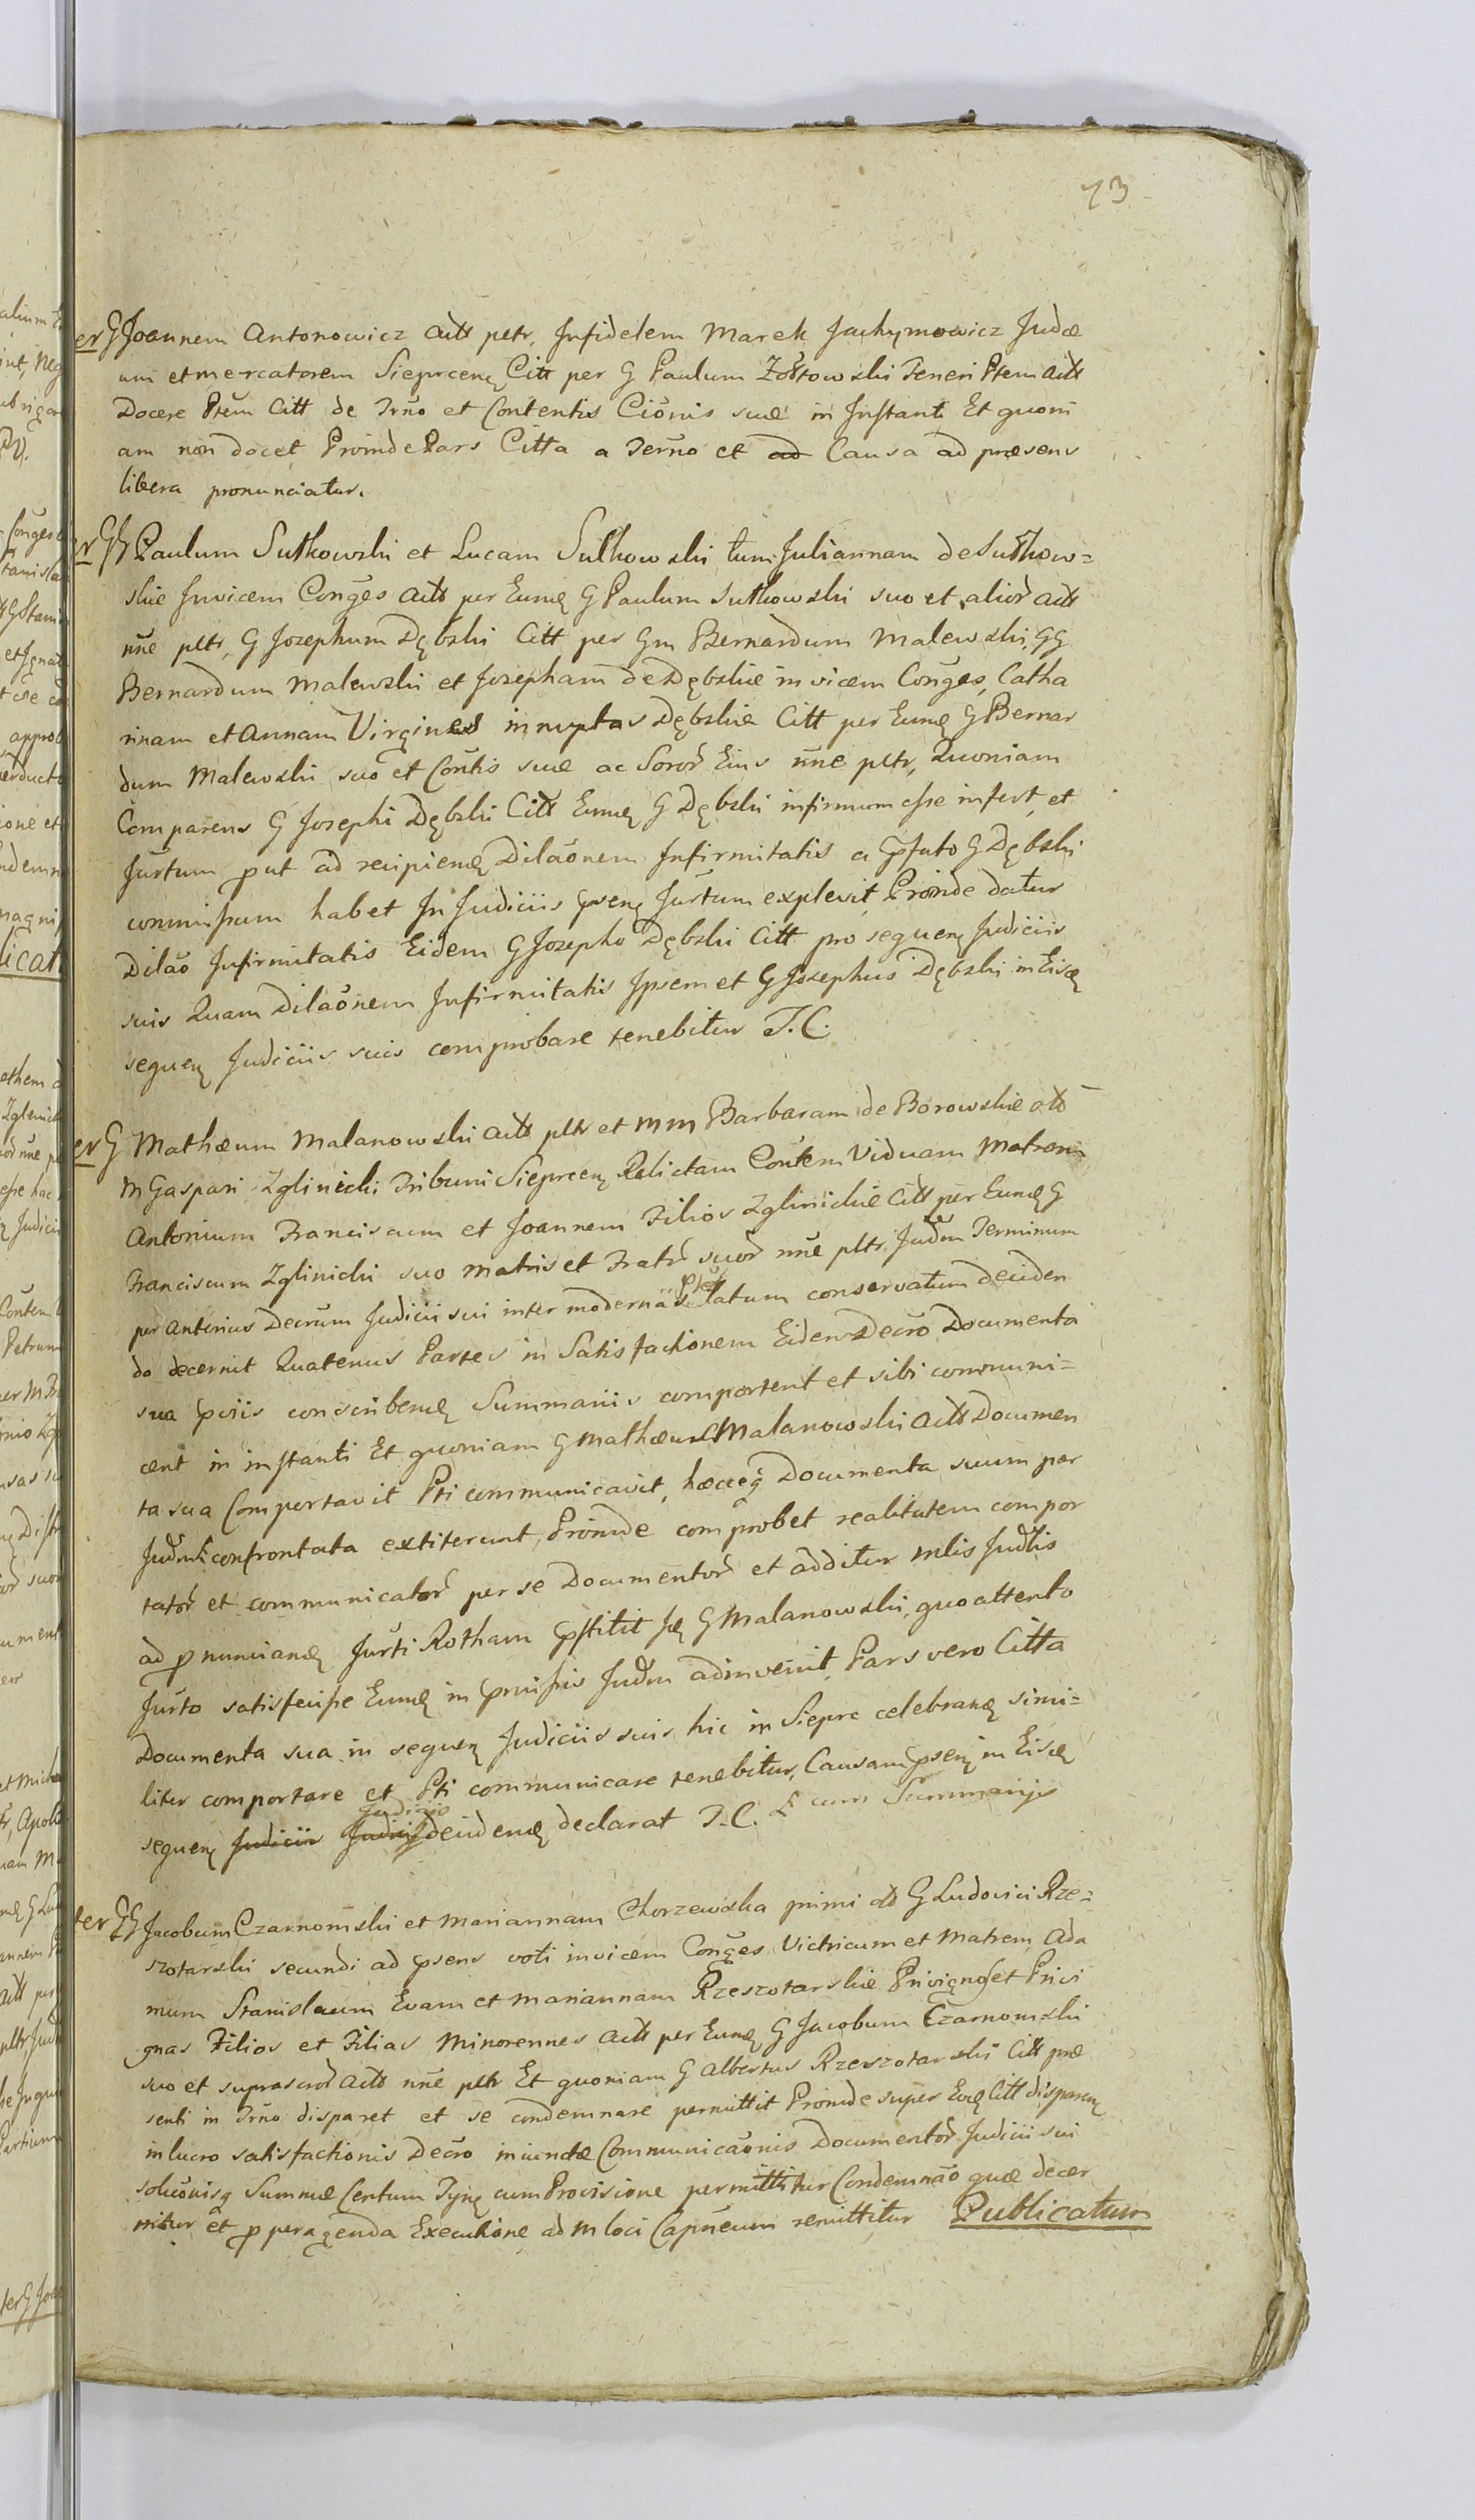 73
er G Joannem Antonowicz Actt pltr, Infidelem Marek Jachymowicz Judæ
um et mercatorem Sieprcenę Citt per G Paulum Żółtowski Teneri Ptem Actt
Docere Ptem Citt de Trno et Contentis Cionis suæ in Instanti Et quoni
am non docet Proinde Pars Citta a Terno et ad Causa ad præsens
libera pronunciatur.
er GG Paulum Sutkowski et Lucam Sutkowski tum Juliannam de Sutkow=
skie Invicem Conges Actt per Eumę G Paulum Sutkowski suo et alior Actt
nne pltr, G Josephum Dębski Citt per Gm Bernardum Malewski, GG
Bernardum Malewski et Josepham de Dębskie invicem Conges, Catha
rinam et Annam Virgines innuptas Dębskie Citt per Eumę G Bernar
dum Malewski suo et Contis suæ ac Soror Eius nne pltr, Quoniam
Comparens G Josephi Dębski Citt Eumę G Dębski infirmum esse infert, et
Jurtum put ad recipienę Dilaonem Infirmitatis a pfato G Dębski
commissum habet In Judiciis psenę Jurtum explevit, Proinde datur
Dilao Infirmitatis Eidem G Josepho Dębski Citt pro sequenę Judiciis
suis Quam Dilaonem Infirmitatis Ipsemet G Josephus Dębski in Eisdę
sequenę Judiciis suis comprobare tenebitur T. C.
er G Mathæum Malanowski Actt pltr et MM Barbaram de Borowskie oto
M Gaspari Zglinicki Tribuni Sieprcenę Relictam Contem Viduam Matrem
Antonium Franciscum et Joannem Filios Zglinickie Citt per Eumę G
Franciscum Zglinicki suo Matris et Fratr suor nne pltr. Judm Terminum
per anterius Decrum Judicii sui inter modernas Ptes latum conservatum deciden
do decernit Quatenus Partes in Satisfactionem Eidem Decro Documenta
sua pviis conscribenę Summariis comportent et sibi communi=
cent in instanti Et quoniam G Mathæus Malanowski Actt Documen
ta sua Comportavit Pti communicavit, hæcque Documenta suum per
Judm confrontata extiterunt, Proinde comprobet realitatem compor
tator et communicator per se Documentor et additur mlis Judlis
ad pnuncianę Jurti Rotham pstitit Sę G Malanowski, quo attento
Jurto satisfecisse Eumę in pmissis Judm adinvenit, Pars vero Citta
Documenta sua in sequenę Judiciis suis hic in Sieprc celebranę simi=
liter comportare et Pti communicare tenebitur, Causam psenę in Eisdę
sequenę Judiciis Judicijs Judicijs decidenę declarat T. C. cum Summarijs
ter GG Jacobum Czarnomski et Mariannam Chorzewska primi oto G Ludovici Rze=
szotarski secundi ad psens voti invicem Conges Victricum et Matrem, Ada
mum Stanislaum Evam et Mariannam Rzeszotarskie Privignos et Privi
gnas Filios et Filias Minorennes Actt per Eumę G Jacobum Czarnomski
suo et suprascror Actt nne pltr Et quoniam G Albertus Rzeszotarski Citt præ
senti in Trno disparet et se condemnare permittit Proinde super Eodę Citt disparenę
in lucro satisfactionis Decro iniunctæ Communicaonis Documentor Judicii sui
soluonisq Summæ Centum Tynę cum Provisione permittitur Condemnao quæ decer
nitur et p peragenda Executione ad M loci Capneum remittitur Publicatum